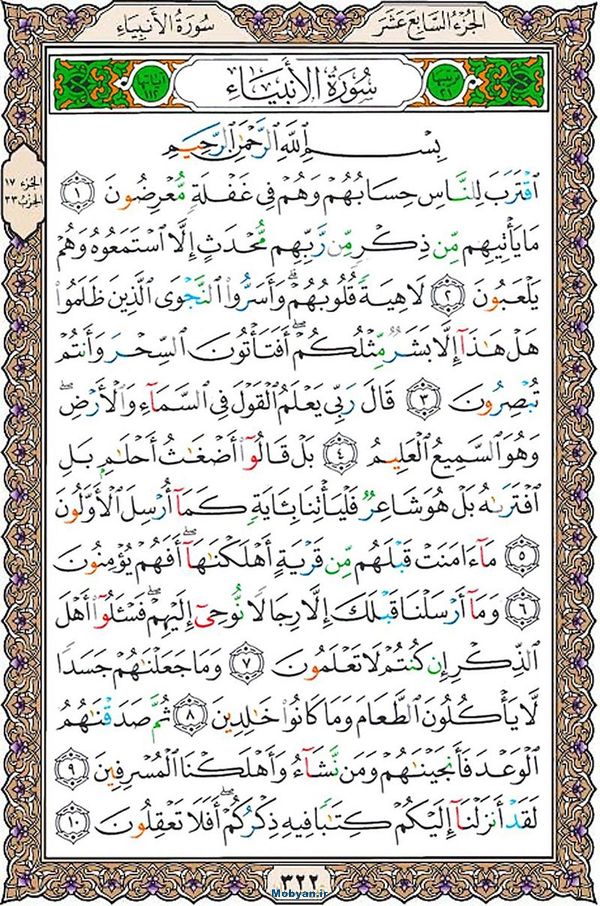 الجزء السابع عشر
سورة الأنبياء
سُورَةُ الأَنبِيَاءِ
بِسْمِ اللَّهِ الرَّحْمَٰنِ الرَّحِيمِ
الجزء ١٧
الحزب ٣٣
ٱقْتَرَبَ لِلنَّاسِ حِسَابُهُمْ وَهُمْ فِى غَفْلَةٍ مُّعْرِضُونَ ١
مَا يَأْتِيهِم مِّن ذِكْرٍ مِّن رَّبِّهِم مُّحْدَثٍ إِلَّا ٱسْتَمَعُوهُ وَهُمْ
يَلْعَبُونَ ٢ لَاهِيَةً قُلُوبُهُمْ ۗ وَأَسَرُّوا۟ ٱلنَّجْوَى ٱلَّذِينَ ظَلَمُوا۟
هَلْ هَٰذَآ إِلَّا بَشَرٌ مِّثْلُكُمْ ۖ أَفَتَأْتُونَ ٱلسِّحْرَ وَأَنتُمْ
تُبْصِرُونَ ٣ قَالَ رَبِّى يَعْلَمُ ٱلْقَوْلَ فِى ٱلسَّمَآءِ وَٱلْأَرْضِ ۖ
وَهُوَ ٱلسَّمِيعُ ٱلْعَلِيمُ ٤ بَلْ قَالُوٓا۟ أَضْغَٰثُ أَحْلَٰمٍ بَلِ
ٱفْتَرَىٰهُ بَلْ هُوَ شَاعِرٌ فَلْيَأْتِنَا بِـَٔايَةٍ كَمَآ أُرْسِلَ ٱلْأَوَّلُونَ
٥ مَآ ءَامَنَتْ قَبْلَهُم مِّن قَرْيَةٍ أَهْلَكْنَٰهَآ ۖ أَفَهُمْ يُؤْمِنُونَ
٦ وَمَآ أَرْسَلْنَا قَبْلَكَ إِلَّا رِجَالًا نُّوحِىٓ إِلَيْهِمْ ۖ فَسْـَٔلُوٓا۟ أَهْلَ
ٱلذِّكْرِ إِن كُنتُمْ لَا تَعْلَمُونَ ٧ وَمَا جَعَلْنَٰهُمْ جَسَدًا
لَّا يَأْكُلُونَ ٱلطَّعَامَ وَمَا كَانُوا۟ خَٰلِدِينَ ٨ ثُمَّ صَدَقْنَٰهُمُ
ٱلْوَعْدَ فَأَنجَيْنَٰهُمْ وَمَن نَّشَآءُ وَأَهْلَكْنَا ٱلْمُسْرِفِينَ ٩
لَقَدْ أَنزَلْنَآ إِلَيْكُمْ كِتَٰبًا فِيهِ ذِكْرُكُمْ ۖ أَفَلَا تَعْقِلُونَ ١٠
٣٢٢
Mobyan.ir